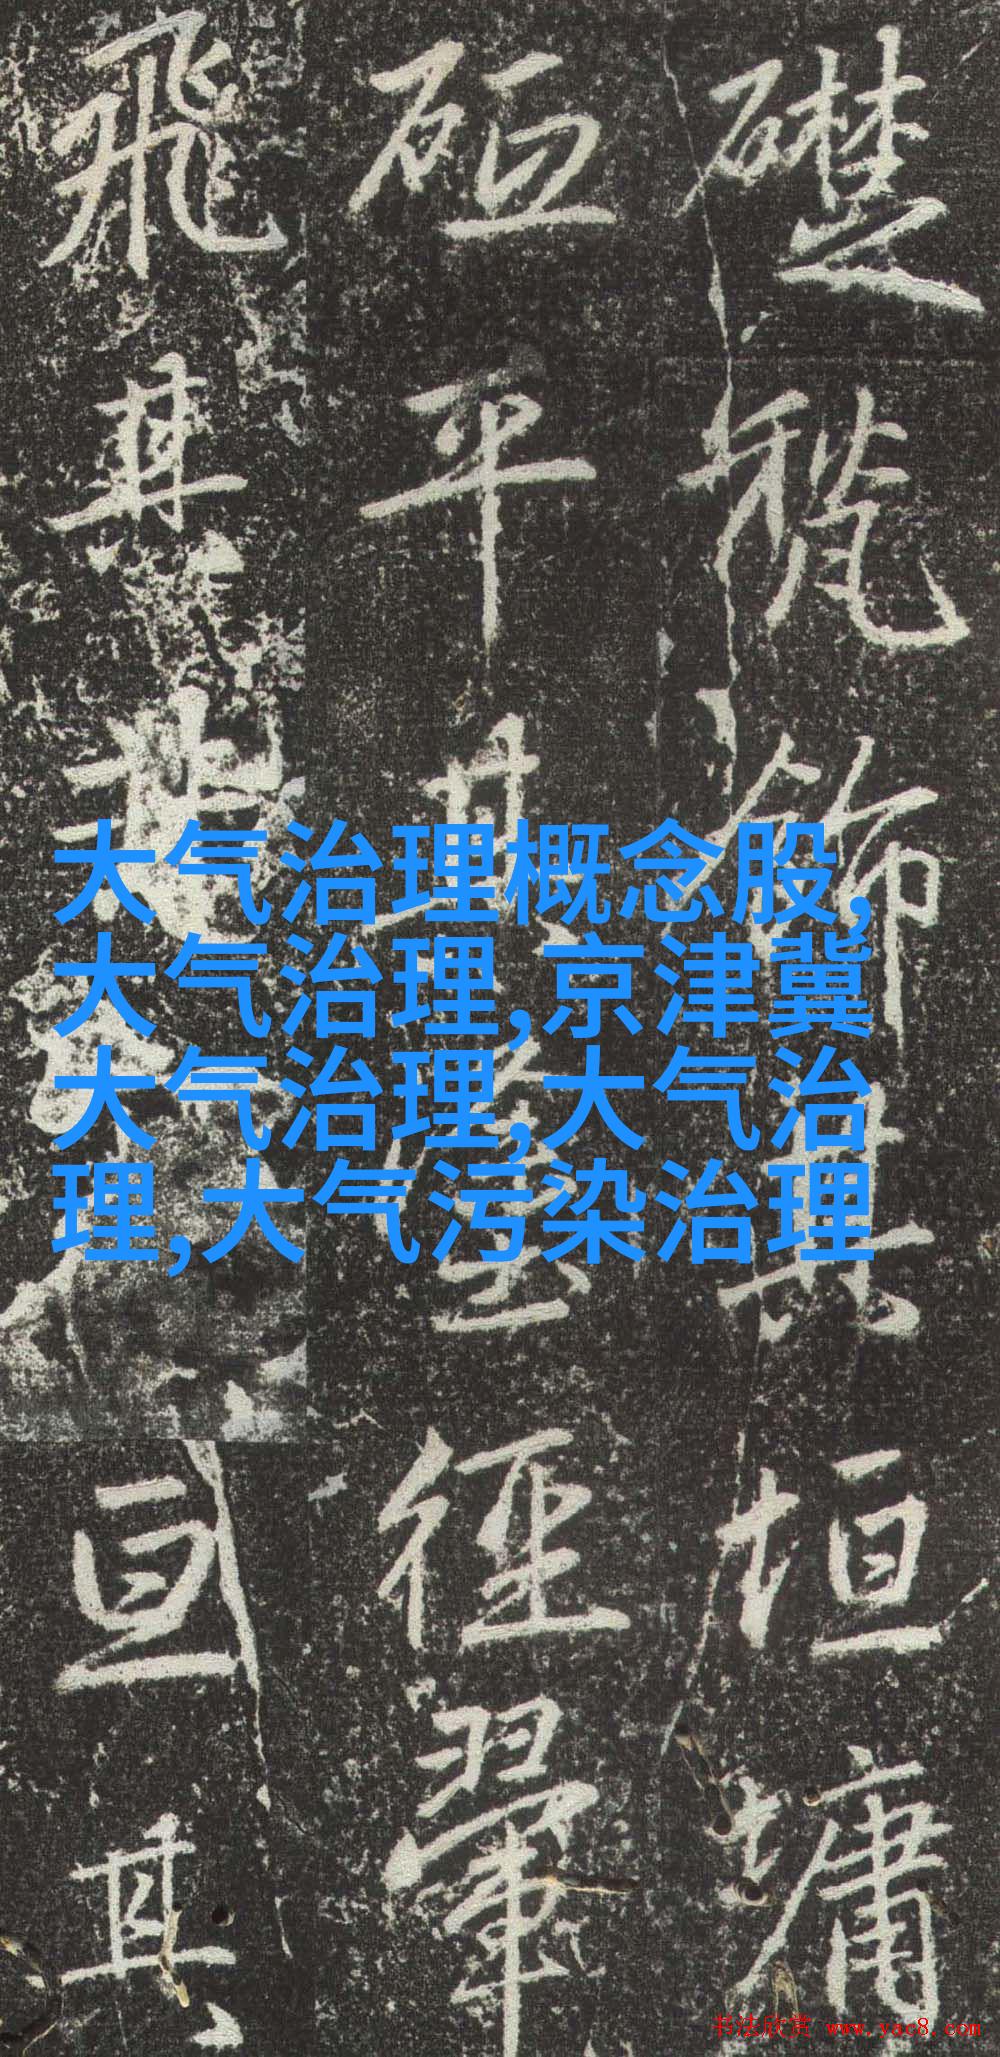 礎飾其垣墉
平其徑翬
飛其亘其
大气治理概念股,
大气治理,京津冀
大气治理,大气治
理,大气污染治理
书法欣赏 www.yac8.com